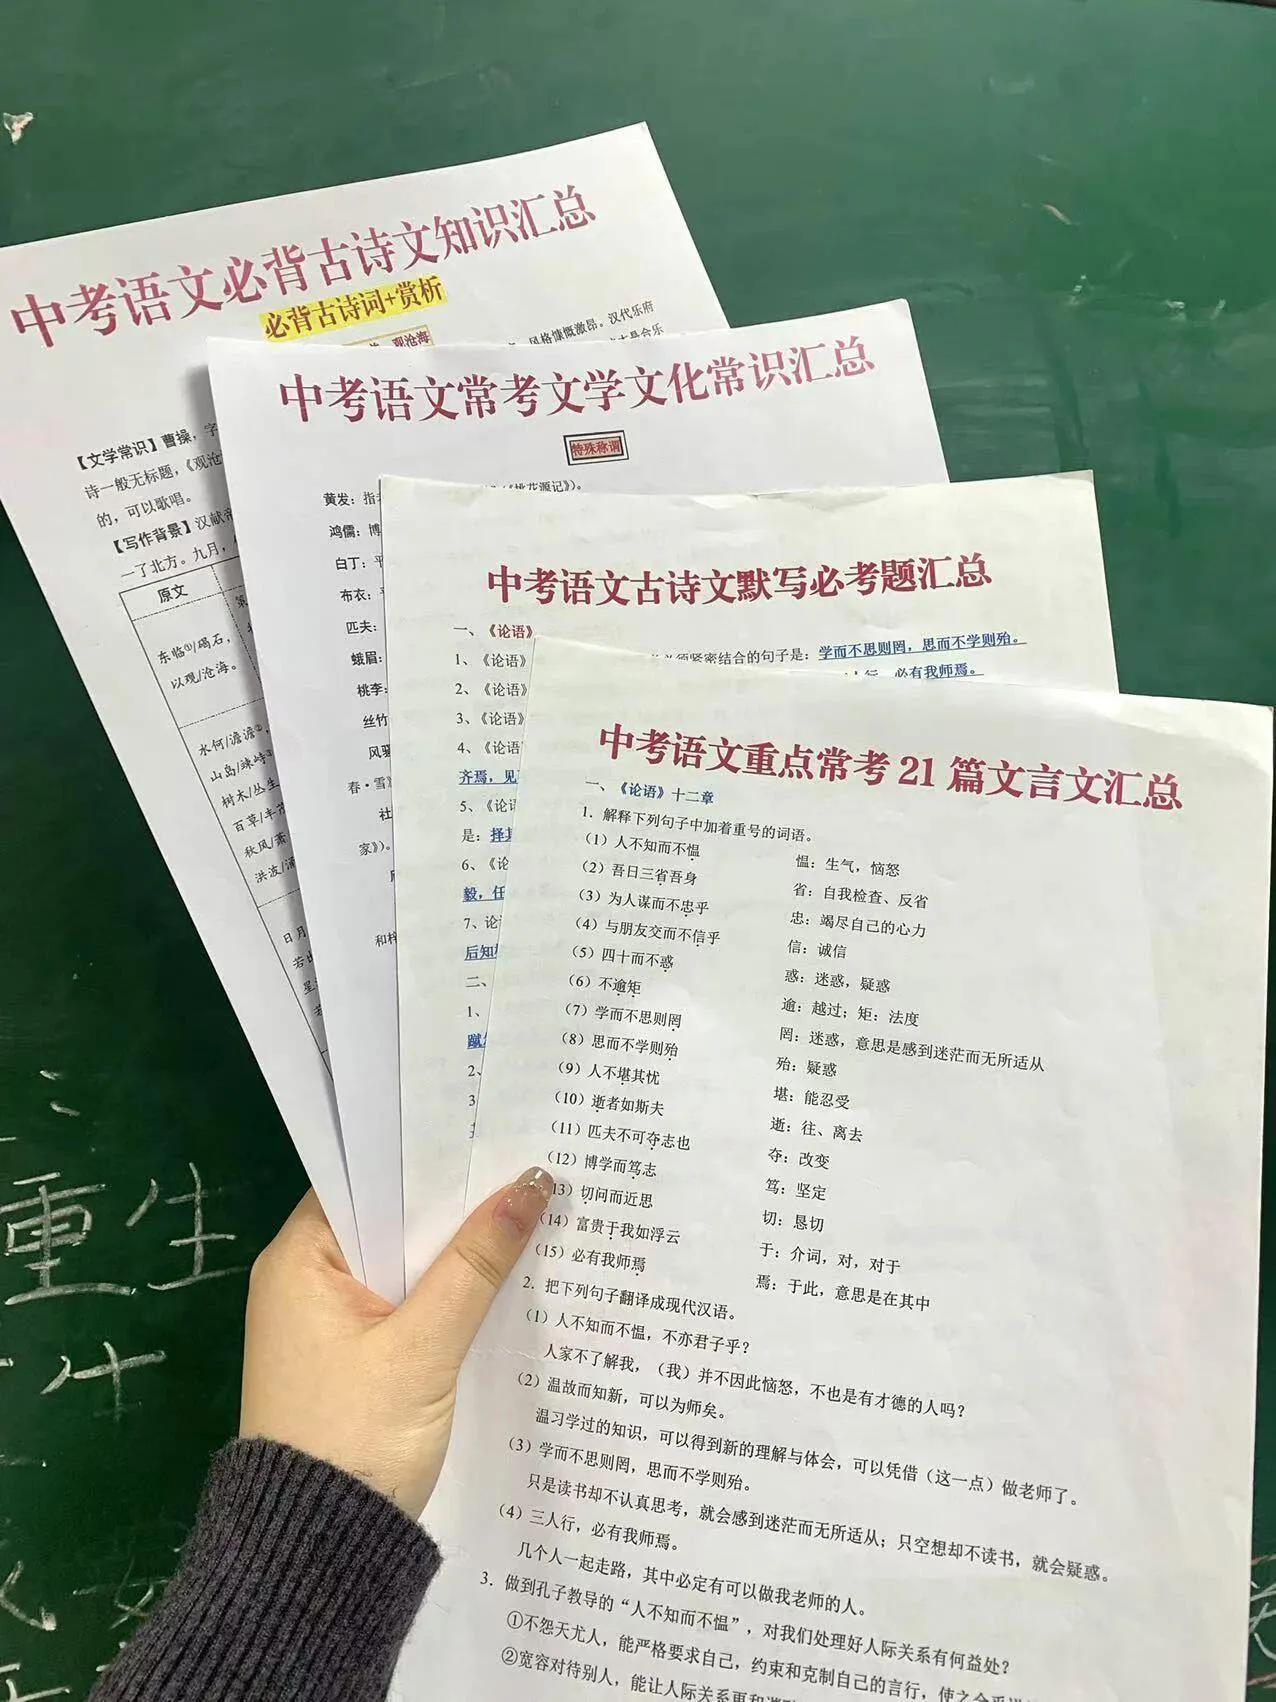 中考语文必背古诗文知识汇总
必背古诗词+赏析
观沧海
风格慷慨激昂。汉代乐府
【文学常识】曹操，字
诗一般无标题，《观沧
的，可以歌唱。
【写作背景】汉献帝
一了北方。九月，
原文
东临①/碣石，
以观/沧海。
水何/澹澹②，
山岛/竦峙③
树木/丛生
百草/丰茂
秋风/萧
洪波/涌
日月
若出
中考语文常考文学文化常识汇总
特殊称谓
《桃花源记》）。
黄发：指老
鸿儒：博
白丁：平
布衣：
匹夫：
蛾眉：
桃李：
丝竹
风骚
春·雪》
社
家》）。
和梓
中考语文古诗文默写必考题汇总
一、《论语》
1、《论语》
必须紧密结合的句子是：学而不思则罔，思而不学则殆。
2、《论语》
人行，必有我师焉。
3、《论语》
4、《论语
齐焉，见
5、《论语
是：择其
6、《论
毅，任
7、论
后知
二、
1、
蹴
2、
3
中考语文重点常考 21 篇文言文汇总
一、《论语》十二章
1．解释下列句子中加着重号的词语。
（1）人不知而不愠 愠：生气，恼怒
（2）吾日三省吾身 省：自我检查、反省
（3）为人谋而不忠乎 忠：竭尽自己的心力
（4）与朋友交而不信乎 信：诚信
（5）四十而不惑 惑：迷惑，疑惑
（6）不逾矩 逾：越过；矩：法度
（7）学而不思则罔 罔：迷惑，意思是感到迷茫而无所适从
（8）思而不学则殆 殆：疑惑
（9）人不堪其忧 堪：能忍受
（10）逝者如斯夫 逝：往、离去
（11）匹夫不可夺志也 夺：改变
（12）博学而笃志 笃：坚定
13）切问而近思 切：恳切
（14）富贵于我如浮云 于：介词，对，对于
（15）必有我师焉 焉：于此，意思是在其中
2．把下列句子翻译成现代汉语。
（1）人不知而不愠，不亦君子乎？
人家不了解我，（我）并不因此恼怒，不也是有才德的人吗？
（2）温故而知新，可以为师矣。
温习学过的知识，可以得到新的理解与体会，可以凭借（这一点）做老师了。
（3）学而不思则罔，思而不学则殆。
只是读书却不认真思考，就会感到迷茫而无所适从；只空想却不读书，就会疑惑。
（4）三人行，必有我师焉。
几个人一起走路，其中必定有可以做我老师的人。
3．做到孔子教导的“人不知而不愠”，对我们处理好人际关系有何益处？
①不怨天尤人，能严格要求自己，约束和克制自己的言行，使之合乎
②宽容对待别人，能让人际关系更和谐
重生